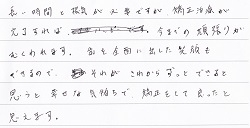 長い時間と根気が必要ですが 矯正治療が
完了すれば、今までの頑張りが
むくわれます。 歯を全面に出した笑顔も
できるので、それが これから ずっとできると
思うと 幸せな気持ちで 矯正をして良かったと
思えます。